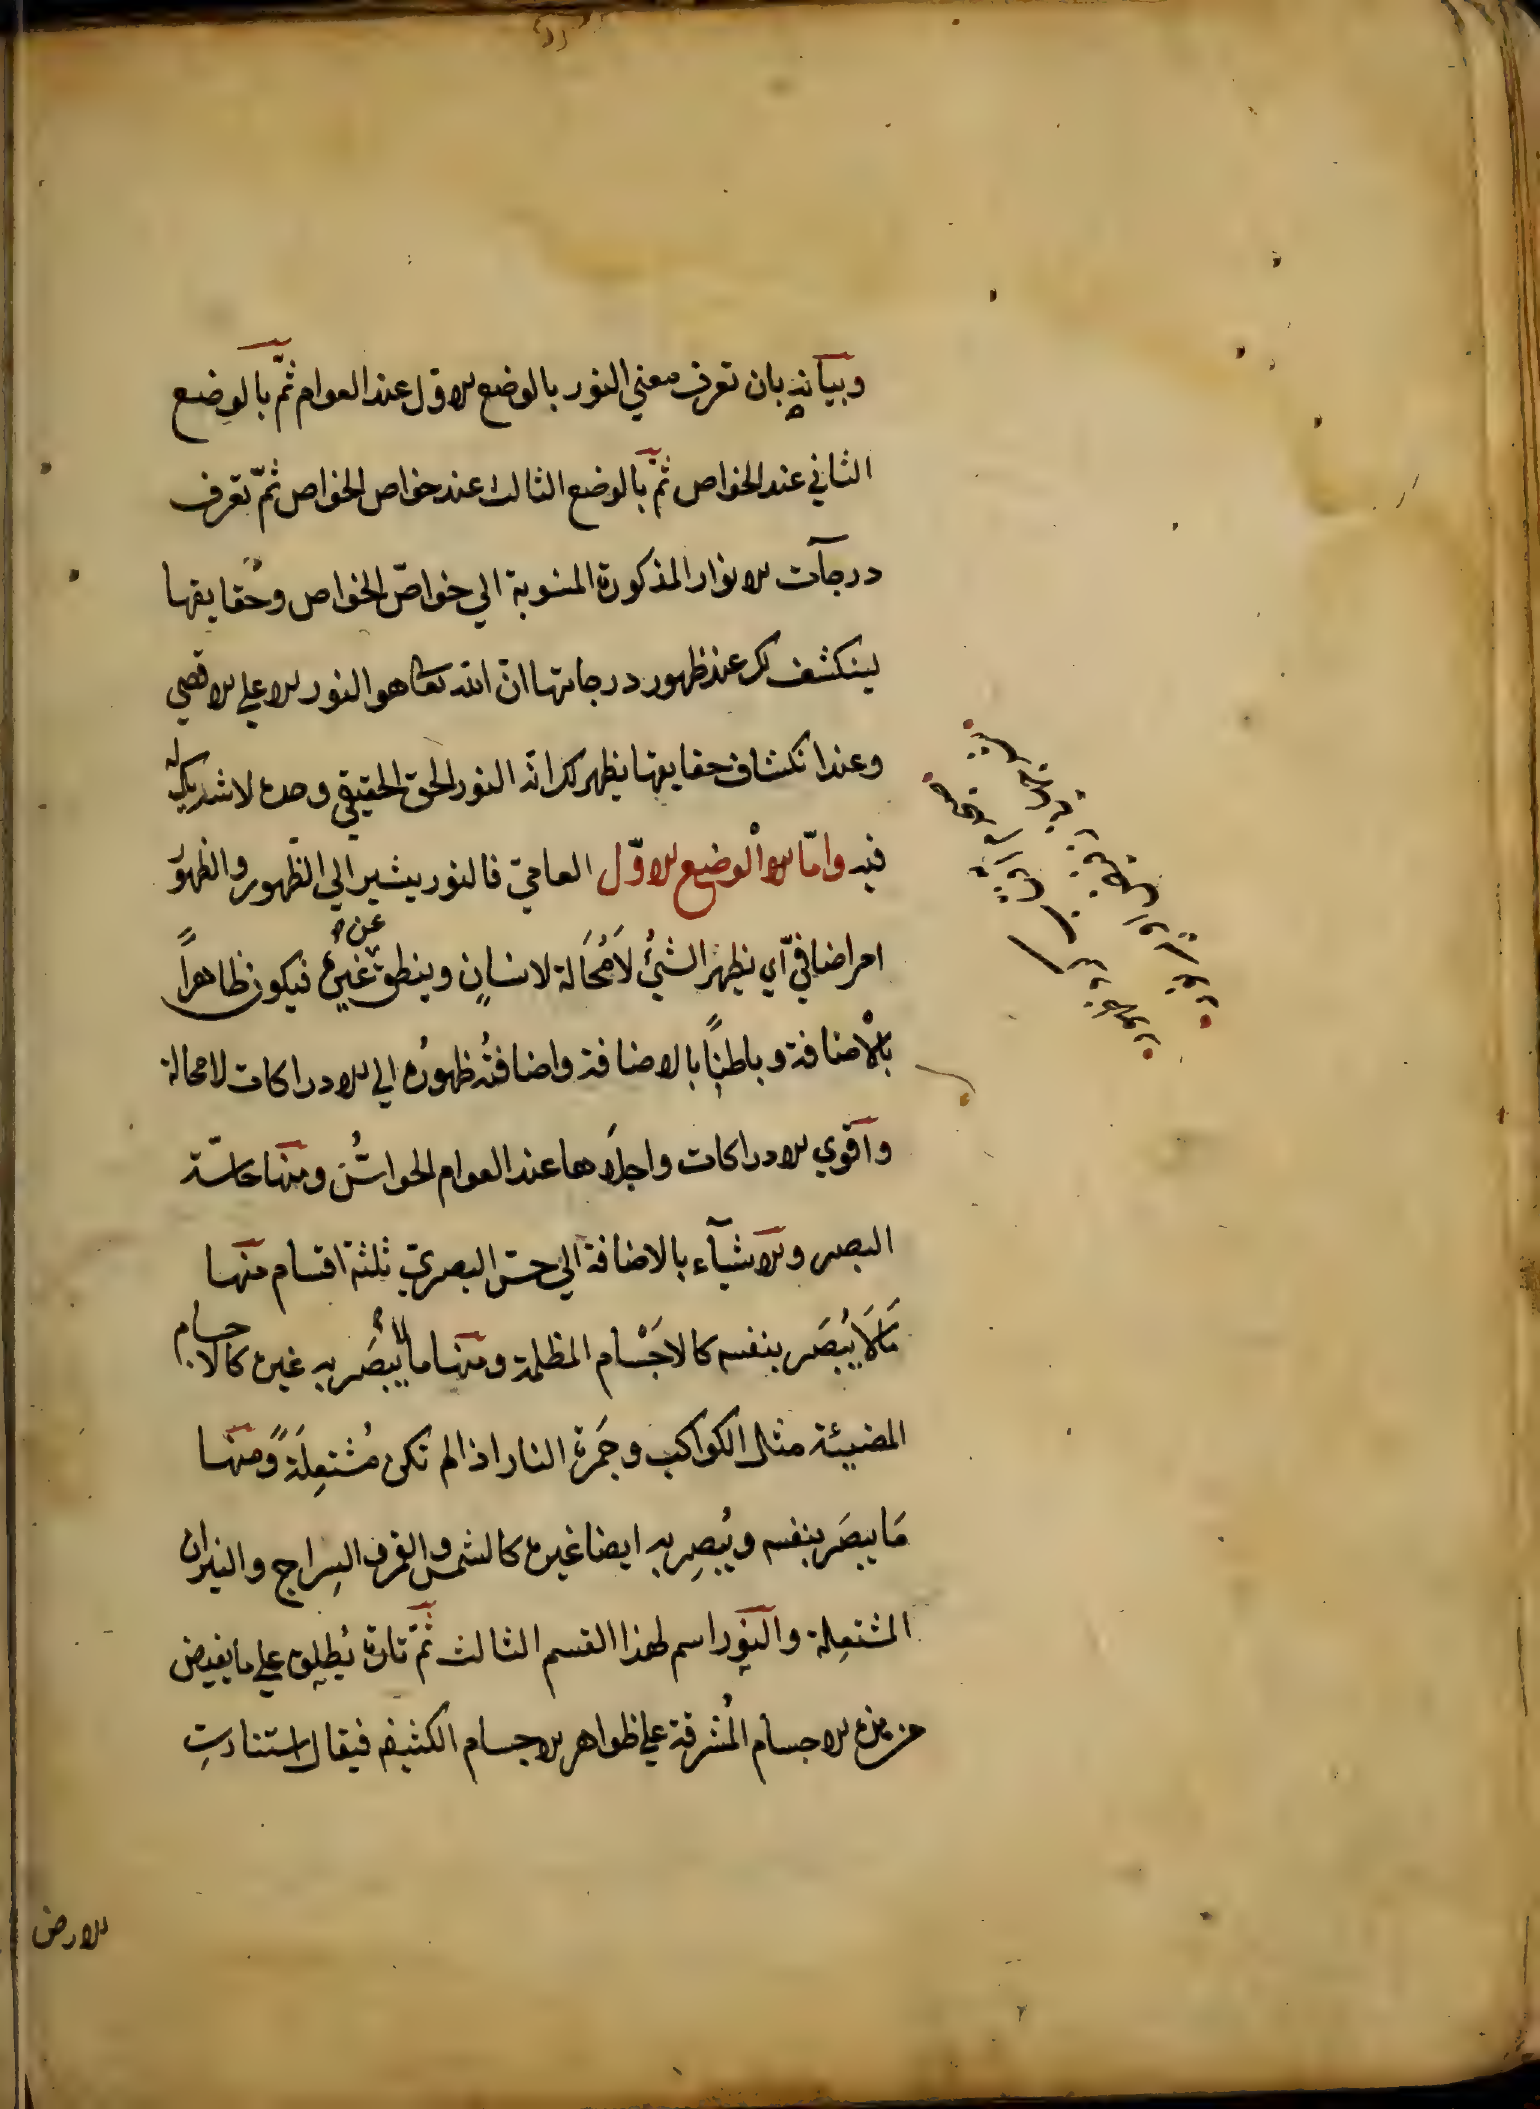 وبيانه بان تعرف معني النور بالوضع الاول عند العوام ثمّ بالوضع
الثاني عند الخواص ثمّ بالوضع الثالث عند خواص الخواص ثمّ تعرف
درجآت الانوار المذكورة المنسوبة الي خواصّ الخواص وحقايقها
لينكشف لك عند ظهور درجاتها انّ الله تعا هو النور الاعلي الاقصي
وعند انكشاف حقايقها يظهر لك انّه النور الحق الحقيقي وحده لا شريك له
فيه وامّا الوضع الاوّل العاميّ فالنور يشير الي الظّهور والظهور
امر اضافيّ اي يظهر الشيُ لَا مُحَالة لانسانٍ وينطق عن غيره فيكون ظاهراً
بالاضافة وباطناً بالاضافة واضافتُه ظهورُه الي الادراكات لا محالة
وآقوي الادراكات واجلاها عند العوام الحواسُّ ومنها حاسّة
البصر والاشيآء بالاضافة الي حسّ البصريّ ثلثة اقسام منها
مَا لَا يُبصَر بنفسه كالاجْسام المظلمة ومنها ما لا يُبصَر به غيره كالاجسام
المضيئة مثل الكواكب وجَمرة النار اذا لم تكن مُشتعِلَةً ومنها
مَا يبصَر بنفسه ويُبصِر به ايضا غيره كالشمس والقمر والسِراج والنيران
المشتعِلة والنور اسم لهذا القسم الثالث ثمّ تارة يُطلق علي ما يفيض
من هذه الاجسام المُشرقة علي ظواهر الاجسام الكثيفه فيقال استنارتِ
الارض